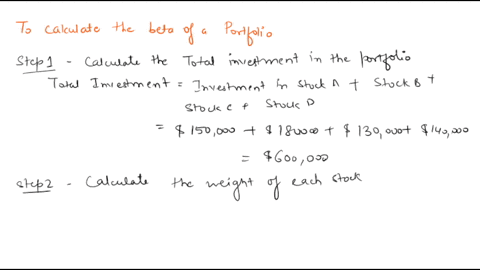 To calculate the beta of a Portfolio
Step1 - Calculate the Total investment in the portfolio
Total Investment = Investment in Stock A + Stock B +
Stock C + Stock D
= $150,000 + $180000 + $130,000 + $140,000
= $600,000
Step2 - Calculate the weight of each stock